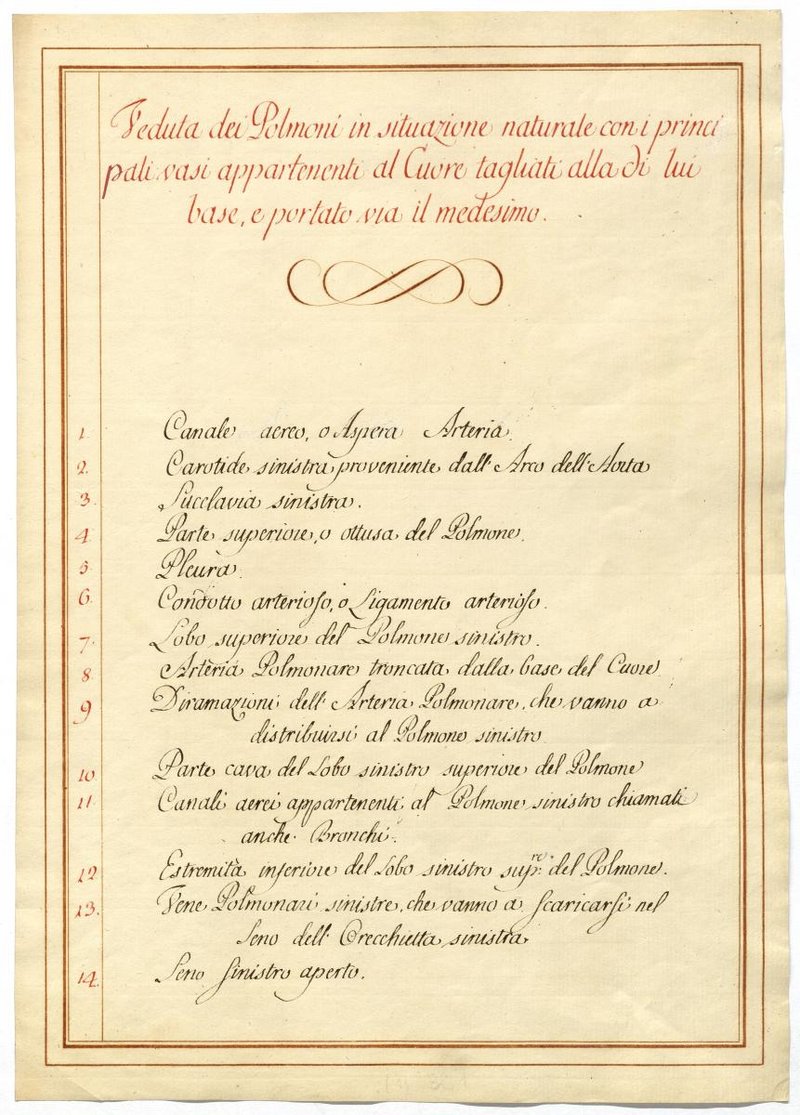 Veduta dei Polmoni in situazione naturale con i princi
pali vasi appartenenti al Cuore tagliati alla di lui
base, e portato via il medesimo.
1. Canale aereo, o Aspera Arteria.
2. Carotide sinistra proveniente dall' Arco dell' Aorta
3. Succlavia sinistra.
4 Parte superiore, o ottusa del Polmone.
5 Pleura.
6. Condotto arterioso, o Ligamento arterioso.
7. Lobo superiore del Polmone sinistro.
8 Arteria Polmonare troncata dalla base del Cuore.
9 Diramazioni dell' Arteria Polmonare, che vanno a
distribuirsi al Polmone sinistro
10. Parte cava del Lobo sinistro superiore del Polmone
11. Canali aerei appartenenti al Polmone sinistro chiamati
anche Bronchi.
12 Estremità inferiore del Lobo sinistro sup.re del Polmone.
13. Vene Polmonari sinistre, che vanno a scaricarsi nel
Seno dell' Orecchietta sinistra
14. Seno sinistro aperto.